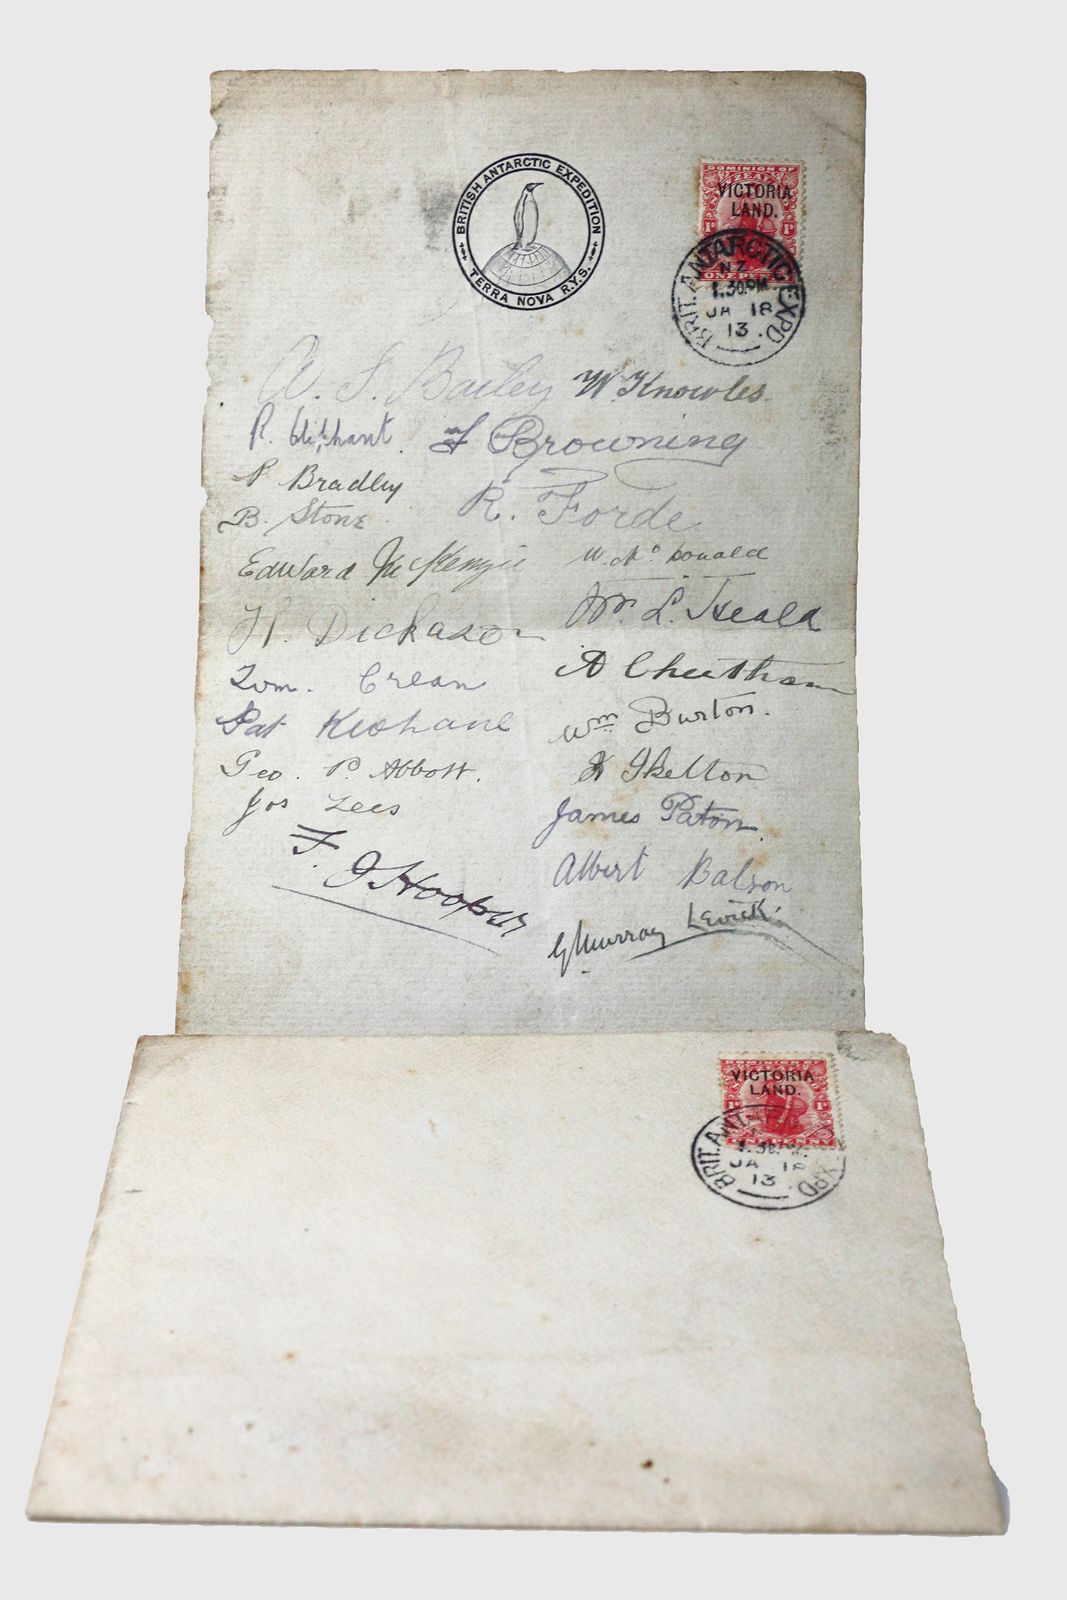 BRITISH ANTARCTIC EXPEDITION
TERRA NOVA R.Y.S.
DOMINION OF
VICTORIA
LAND.
ONE PENNY
BRIT. ANTARCTIC EXPD.
N.Z.
1.30.PM
JA 18
13.
W. S. Bailey W. Knowles
R. Oliphant F Browning
P Bradley R. Forde
B. Stone
Edward McKenzie W. McDonald
H. Dickason Wm. L. Heald
Tom. Crean A Cheetham
Pat Keohane Wm Burton.
Geo. P. Abbott. J Skelton
Jos Lees James Paton.
F. J Hooper Albert Balson
G Murray Levick.
DOMINION OF
VICTORIA
LAND.
ONE PENNY
BRIT. ANT EXPD
JA 18
13.